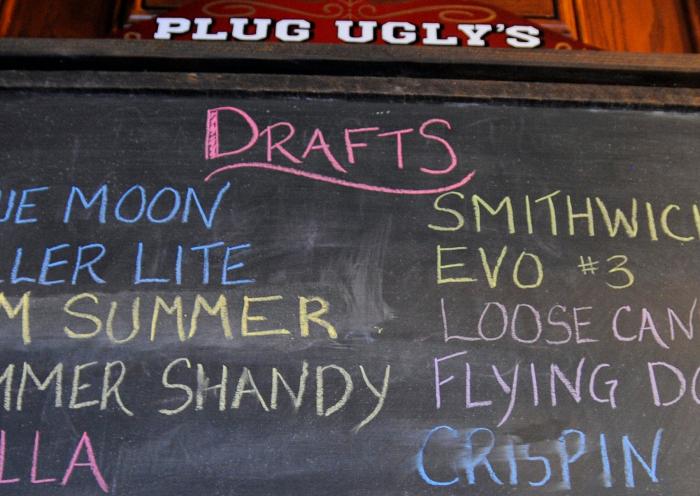 PLUG UGLY'S
DRAFTS
UE MOON
LLER LITE
M SUMMER
MMER SHANDY
LLA
SMITHWIC
EVO #3
LOOSE CAN
FLYING DO
CRISPIN